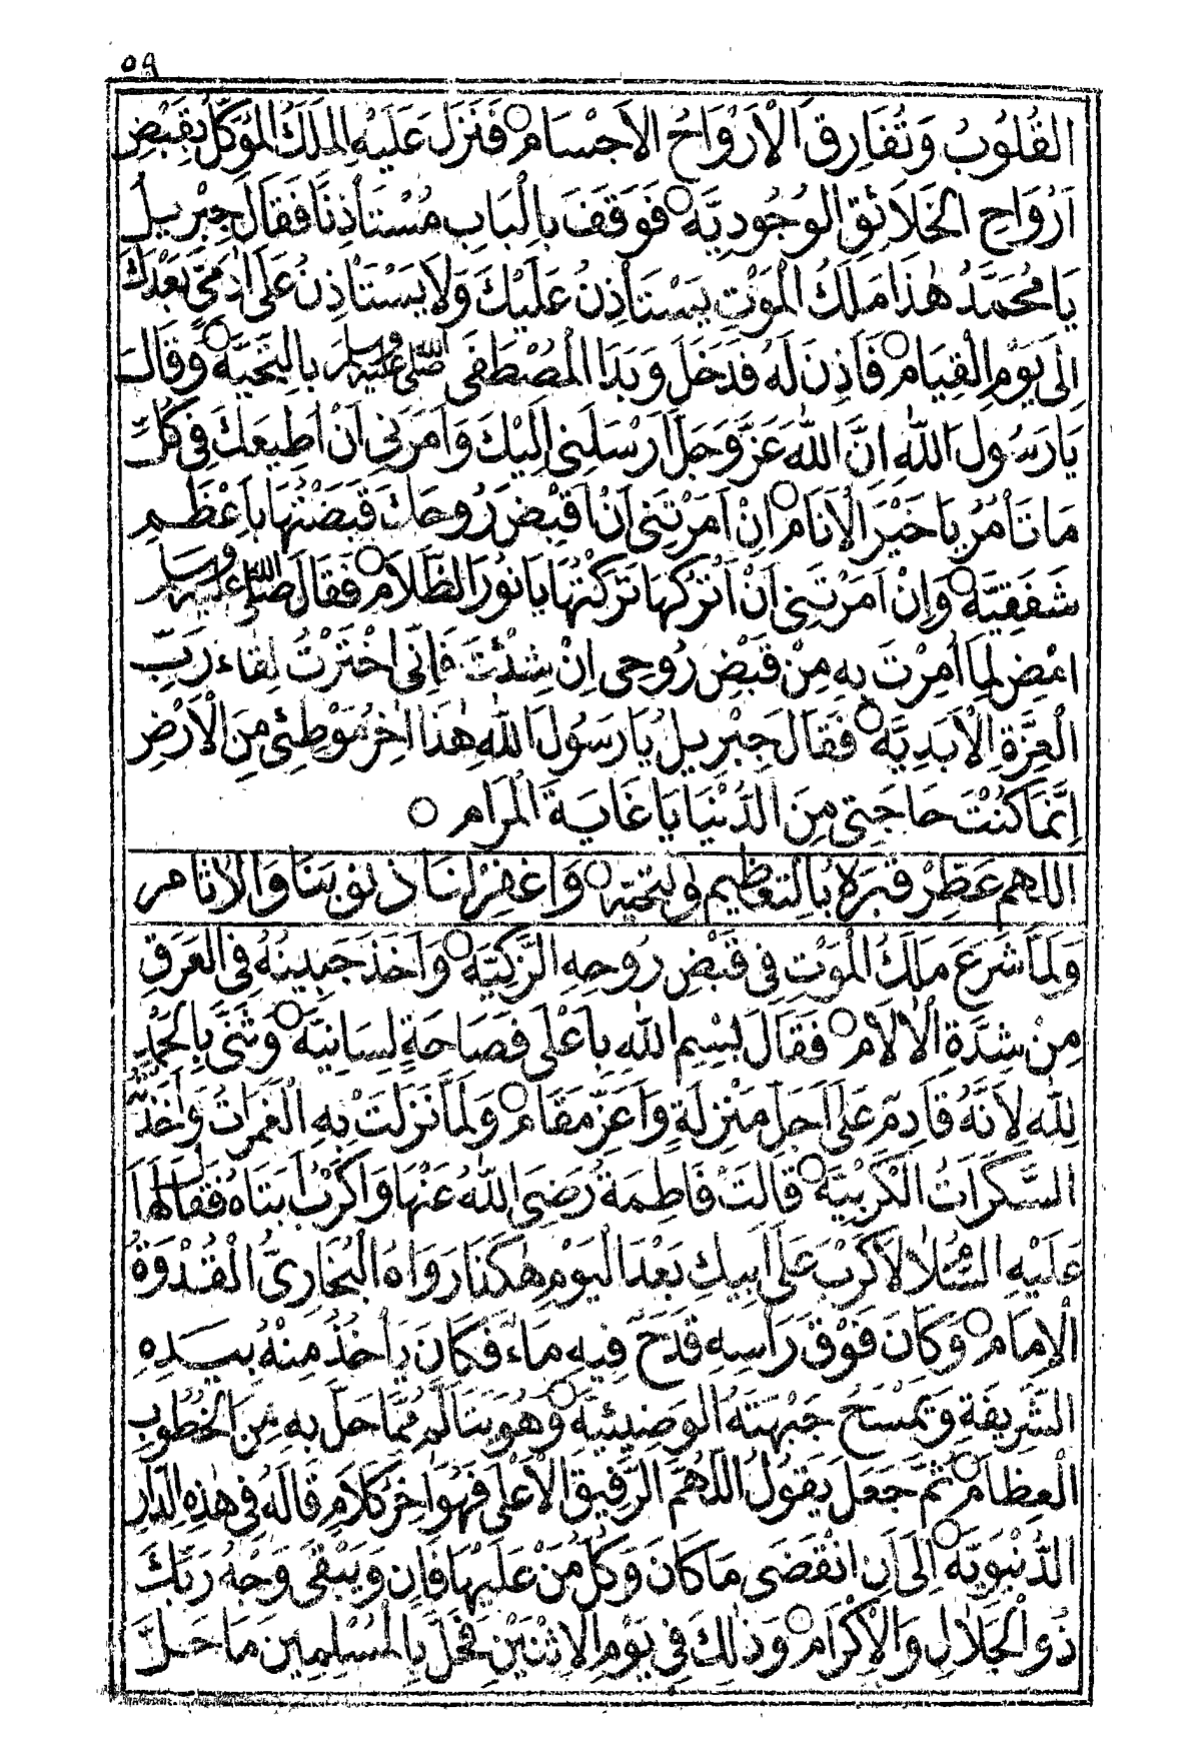 ٥٩
الْقُلُوْبُ وَتُفَارِقَ الْاَرْوَاحُ الْاَجْسَامْ ○ فَنَزَلَ عَلَيْهِ الْمَلَكُ الْمُوَكَّلُ بِقَبْضِ
اَرْوَاحِ الْخَلَائِقِ الْوُجُوْدِيَّةْ ○ فَوَقَفَ بِالْبَابِ مُسْتَأْذِنًا فَقَالَ جِبْرِيلُ
يَا مُحَمَّدُ هٰذَا مَلَكُ الْمَوْتِ يَسْتَأْذِنُ عَلَيْكَ وَلَا يَسْتَأْذِنُ عَلَى اٰدَمِيٍّ بَعْدَكَ
اِلَى يَوْمِ الْقِيَامْ ○ فَاَذِنَ لَهُ فَدَخَلَ وَبَدَا الْمُصْطَفَى صَلَّى اللّٰهُ عَلَيْهِ وَسَلَّمَ بِالتَّحِيَّةْ ○ وَقَالَ
يَا رَسُولَ اللّٰهِ اِنَّ اللّٰهَ عَزَّ وَجَلَّ اَرْسَلَنِى اِلَيْكَ وَاَمَرَنِى اَنْ اُطِيعَكَ فِى كُلِّ
مَا تَأْمُرُ يَا خَيْرَ الْاَنَامْ ○ اِنْ اَمَرْتَنِى اَنْ اَقْبِضَ رُوحَكَ قَبَضْتُهَا بِاَعْظَمِ
شَفَقِيَّةْ ○ وَاِنْ اَمَرْتَنِى اَنْ اَتْرُكَهَا تَرَكْتُهَا يَا نُوْرَ الظَّلَامْ ○ فَقَالَ صَلَّى اللّٰهُ عَلَيْهِ وَسَلَّمَ
امْضِ لِمَا اُمِرْتَ بِهِ مِنْ قَبْضِ رُوحِى اِنْ شِئْتَ فَاِنِّى اخْتَرْتُ لِقَاءَ رَبِّ
الْعِزَّةِ الْاَبَدِيَّةْ ○ فَقَالَ جِبْرِيلُ يَا رَسُوْلَ اللّٰهِ هٰذَا اٰخِرُ مَوْطِئِى مِنَ الْاَرْضِ
اِنَّمَا كُنْتَ حَاجَتِى مِنَ الدُّنْيَا يَا غَايَةَ الْمَرَامِ ○
اللهم عَطِّرْ قَبْرَهُ بِالتَّعْظِيمِ وَالتَّحِيَّةْ ○ وَاغْفِرْ لَنَا ذُنُوبَنَا وَالْاٰثَامْ
وَلَمَّا شَرَعَ مَلَكُ الْمَوْتِ فِى قَبْضِ رُوحِهِ الزَّكِيَّةْ ○ وَاَخَذَ جَبِينُهُ فِى الْعَرَقِ
مِنْ شِدَّةِ الْاٰلَامْ ○ فَقَالَ بِسْمِ اللّٰهِ بِاَعْلَى فَصَاحَةٍ لِسَانِيَّةْ ○ وَثَنَّى بِالْحَمْدِ
لِلّٰهِ لِاَنَّهُ قَادِمٌ عَلَى اَجَلِّ مَنْزِلَةٍ وَاَعَزِّ مَقَامْ ○ وَلَمَّا نَزَلَتْ بِهِ الْغَمَرَاتُ وَاَخَذَتْهُ
السَّكَرَاتُ الْكَرْبِيَّةْ ○ قَالَتْ فَاطِمَةُ رَضِىَ اللّٰهُ عَنْهَا وَاكَرْبَ اَبَتَاهْ فَقَالَ لَهَا
عَلَيْهِ السَّلَامُ لَا كَرْبَ عَلَى اَبِيكِ بَعْدَ الْيَوْمِ هٰكَذَا رَوَاهُ الْبُخَارِىُّ الْقُدْوَةُ
الْاِمَامْ ○ وَكَانَ فَوْقَ رَأْسِهِ قَدَحٌ فِيهِ مَاءٌ فَكَانَ يَأْخُذُ مِنْهُ بِيَدِهِ
الشَّرِيفَةِ وَيَمْسَحُ جَبْهَتَهُ الْوَضِيئِيَّةْ ○ وَهُوَ يَتَأَلَّمُ مِمَّا حَلَّ بِهِ مِنَ الْخُطُوبِ
الْعِظَامْ ○ ثُمَّ جَعَلَ يَقُولُ اللّٰهُمَّ الرَّفِيقَ الْاَعْلَى فَهُوَ اٰخِرُ كَلَامٍ قَالَهُ فِى هٰذِهِ الدَّارِ
الدُّنْيَوِيَّةْ ○ اِلَى اَنِ انْقَضَى مَا كَانَ وَكُلُّ مَنْ عَلَيْهَا فَانٍ وَيَبْقَى وَجْهُ رَبِّكَ
ذُو الْجَلَالِ وَالْاِكْرَامْ ○ وَذٰلِكَ فِى يَوْمِ الْاِثْنَيْنِ فَحَلَّ بِالْمُسْلِمِينَ مَا حَلَّ